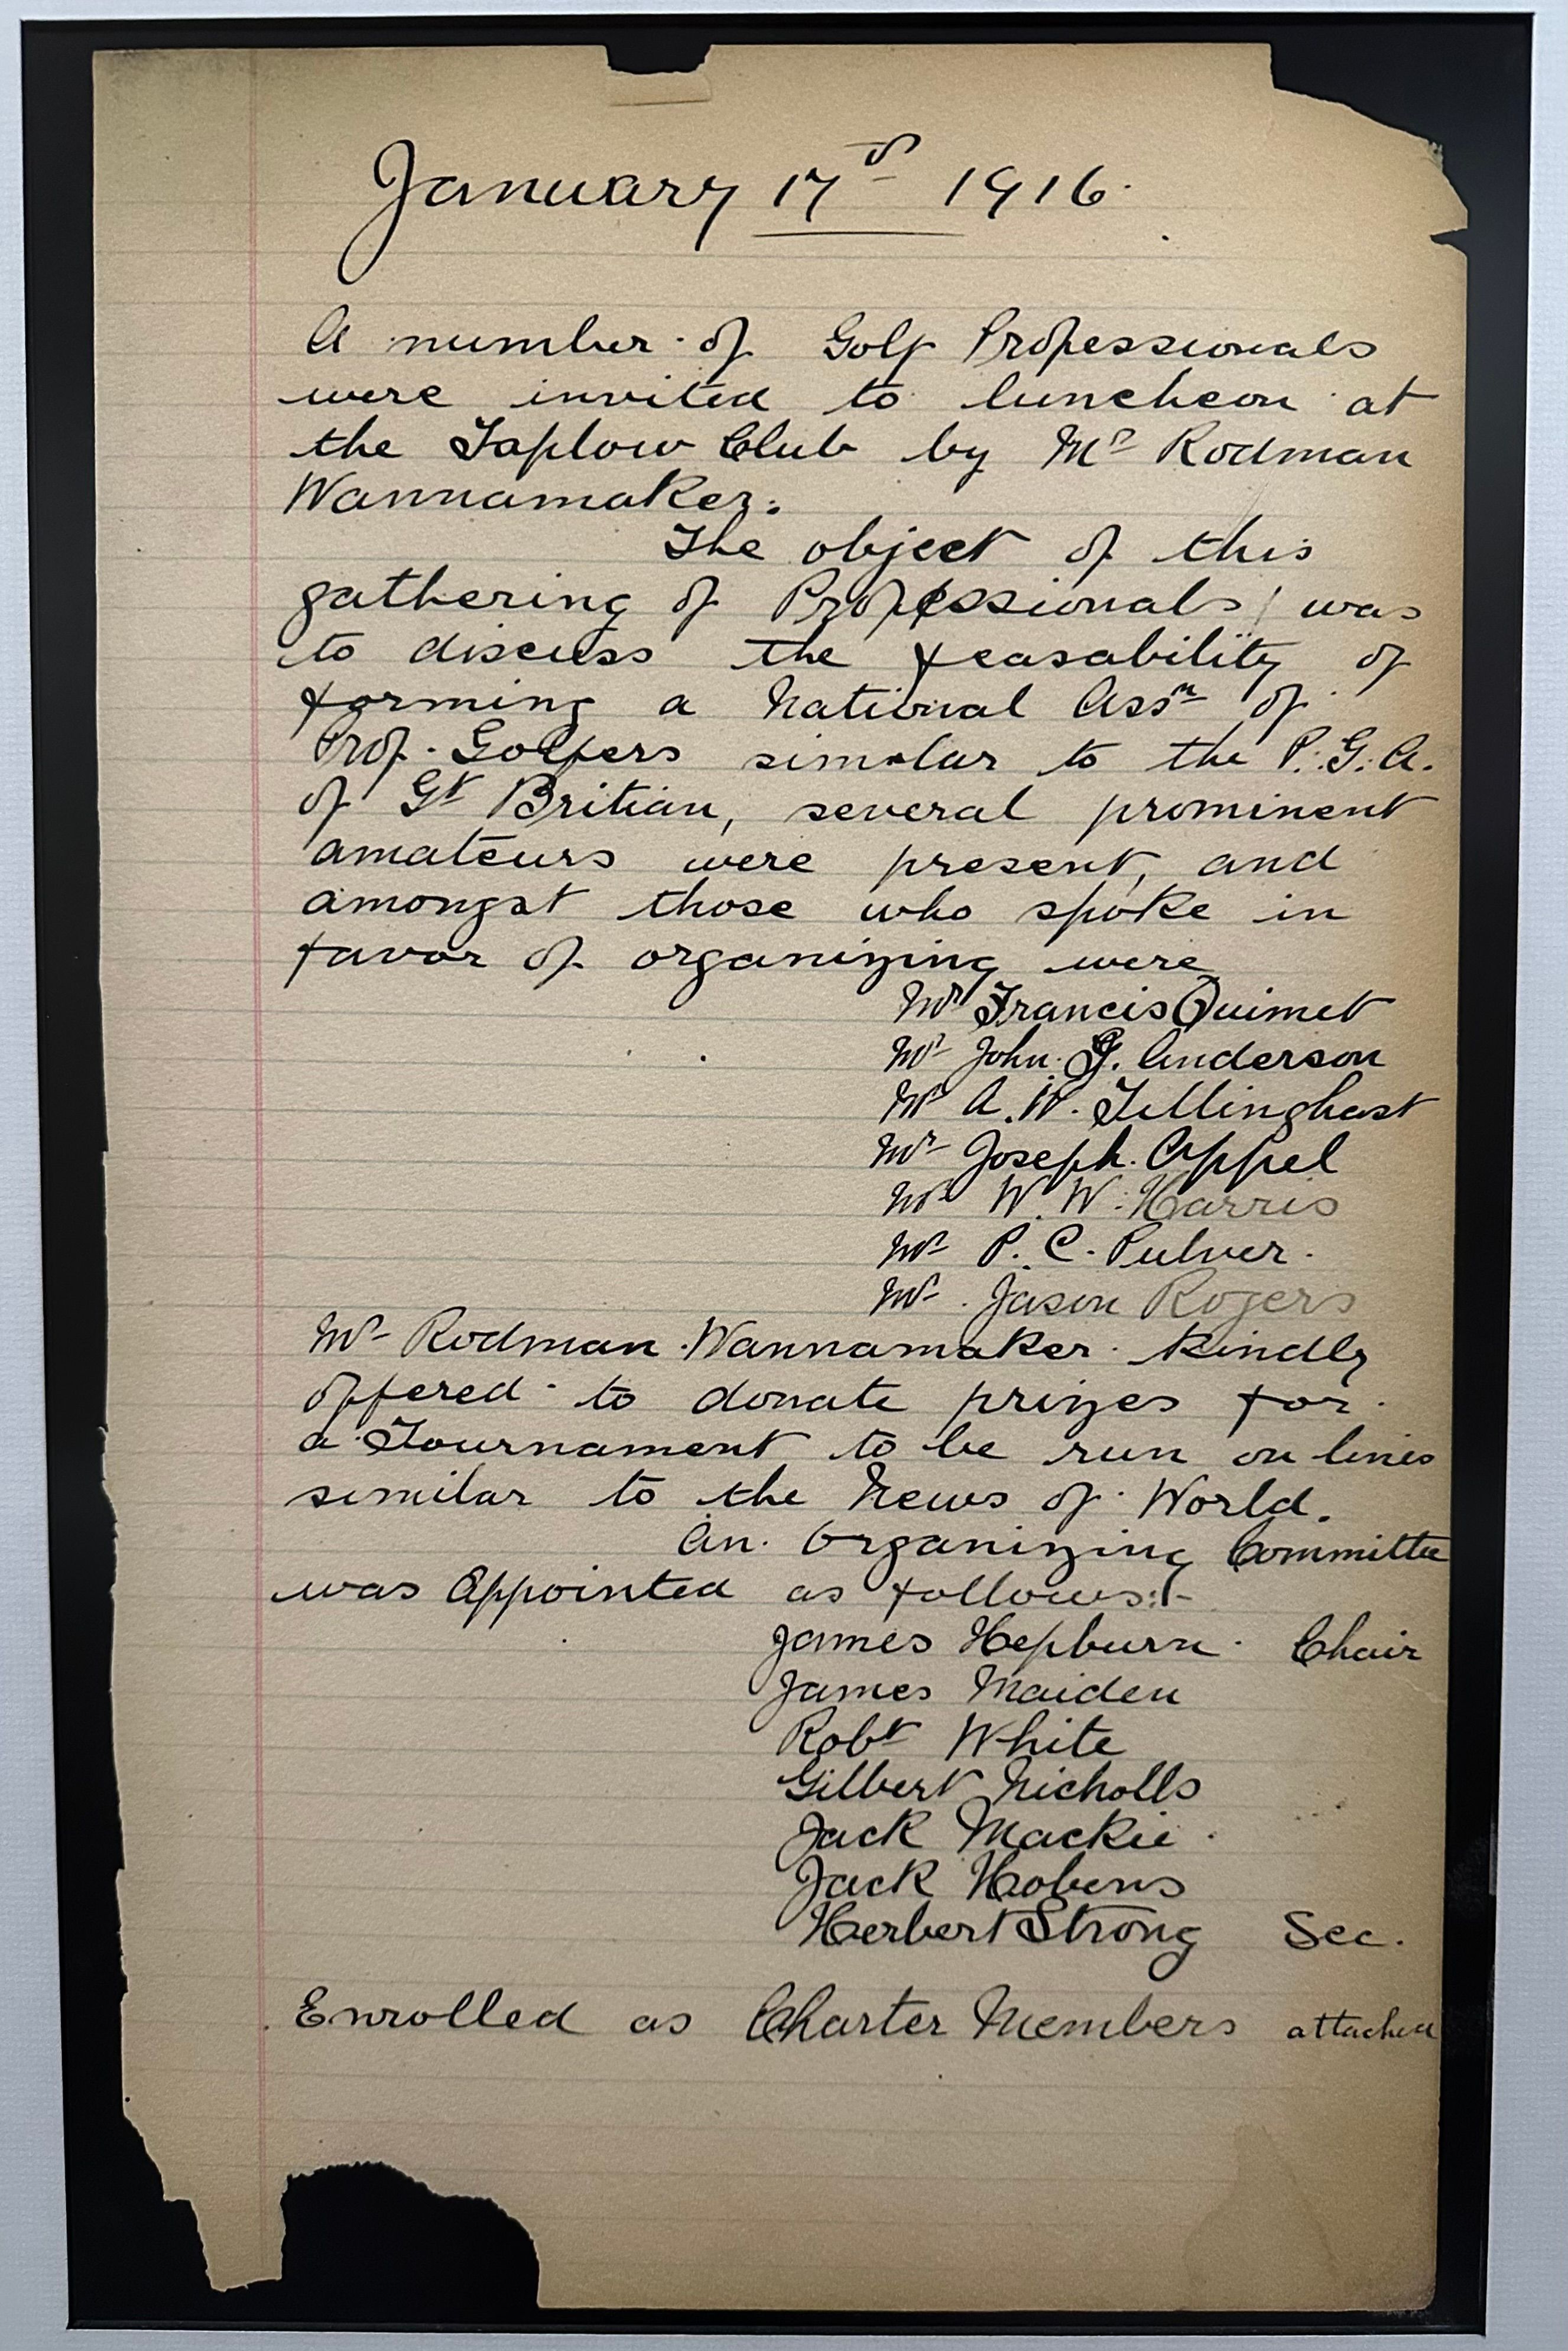 January 17th 1916.
A number of Golf Professionals
were invited to luncheon at
the Taplow Club by Mr Rodman
Wannamaker.
The object of this
gathering of Professionals, was
to discuss the feasability of
forming a National Assn of
Prof. Golfers similar to the P.G.A.
of Gt Britian, several prominent
amateurs were present, and
amongst those who spoke in
favor of organizing were
Mr Francis Ouimet
Mr John G. Anderson
Mr A.W. Tillinghast
Mr Joseph Appel
Mr W. W. Harris
Mr P. C. Pulver.
Mr Jason Rogers
Mr Rodman Wannamaker kindly
offered to donate prizes for
a Tournament to be run on lines
similar to the News of World.
An Organizing Committee
was Appointed as follows:-
James Hepburn. Chair
James Maiden
Robt White
Gilbert Nicholls
Jack Mackie
Jack Hobens
Herbert Strong Sec.
Enrolled as Charter Members attached